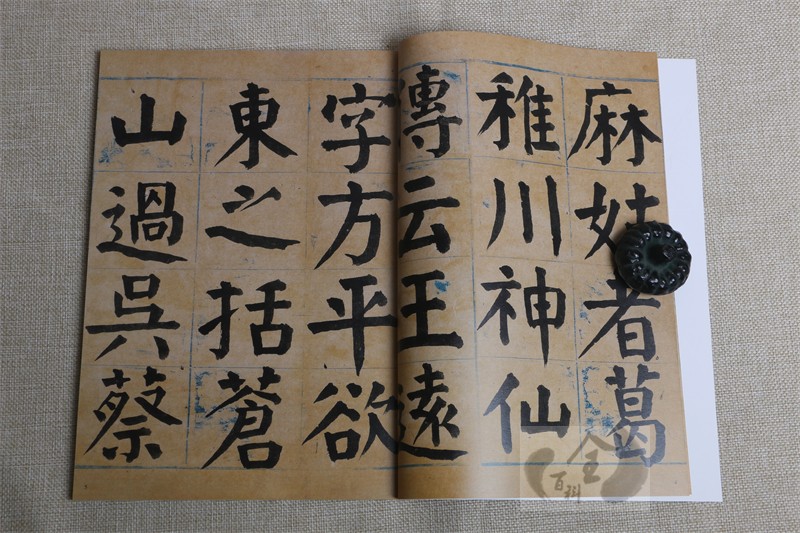 麻姑者葛
稚川神仙
傳云王遠
字方平欲
東之括蒼
山過吳蔡
百科全